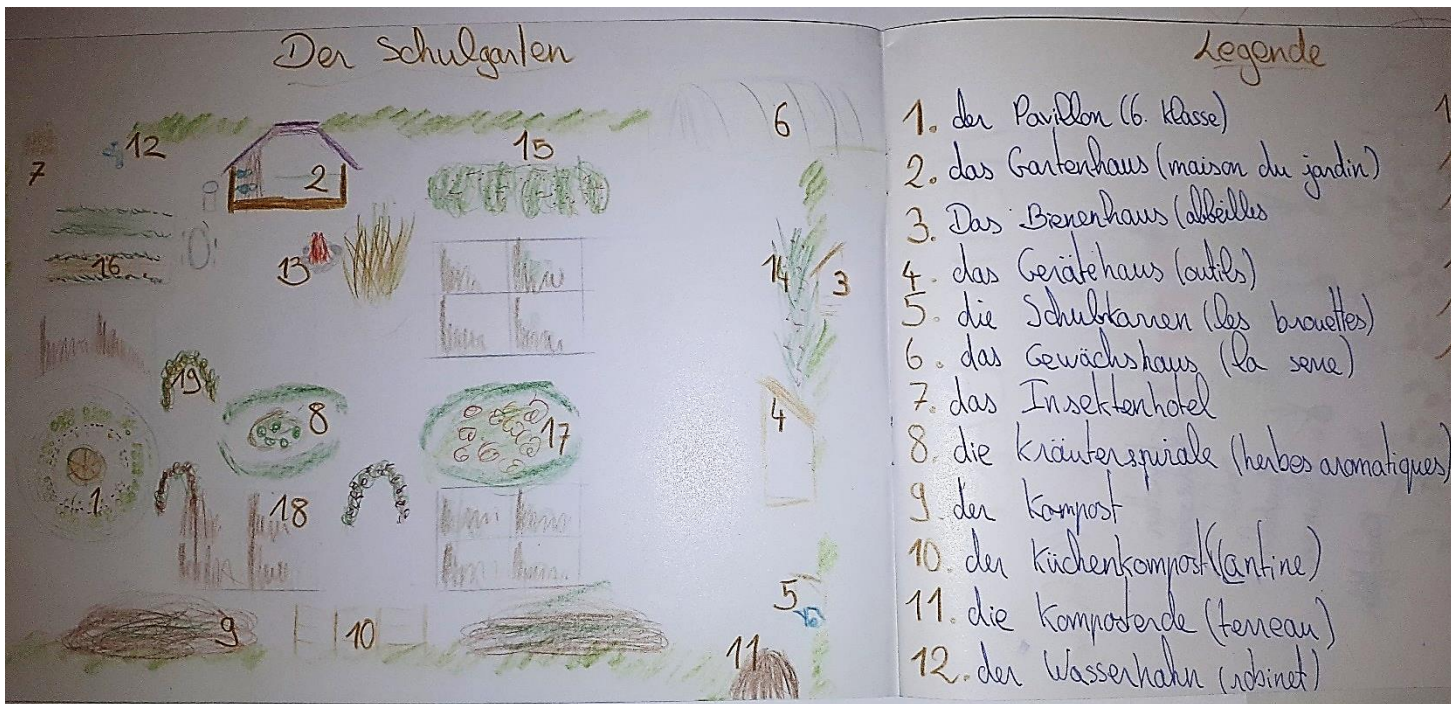 Der Schulgarten
12
15
6
7
2
16
13
14
3
19
8
17
4
1
18
5
9
10
11
Legende
1. der Pavillon (6. klasse)
2. das Gartenhaus (maison du jardin)
3. Das Bienenhaus (abbeilles
4. das Gerätehaus (outils)
5. die Schubkarren (les brouettes)
6. das Gewächshaus (la serre)
7. das Insektenhotel
8. die Kräuterspirale (herbes aromatiques)
9. der Kompost
10. der Küchenkompost (cantine)
11. die Komposterde (terreau)
12. der Wasserhahn (robinet)